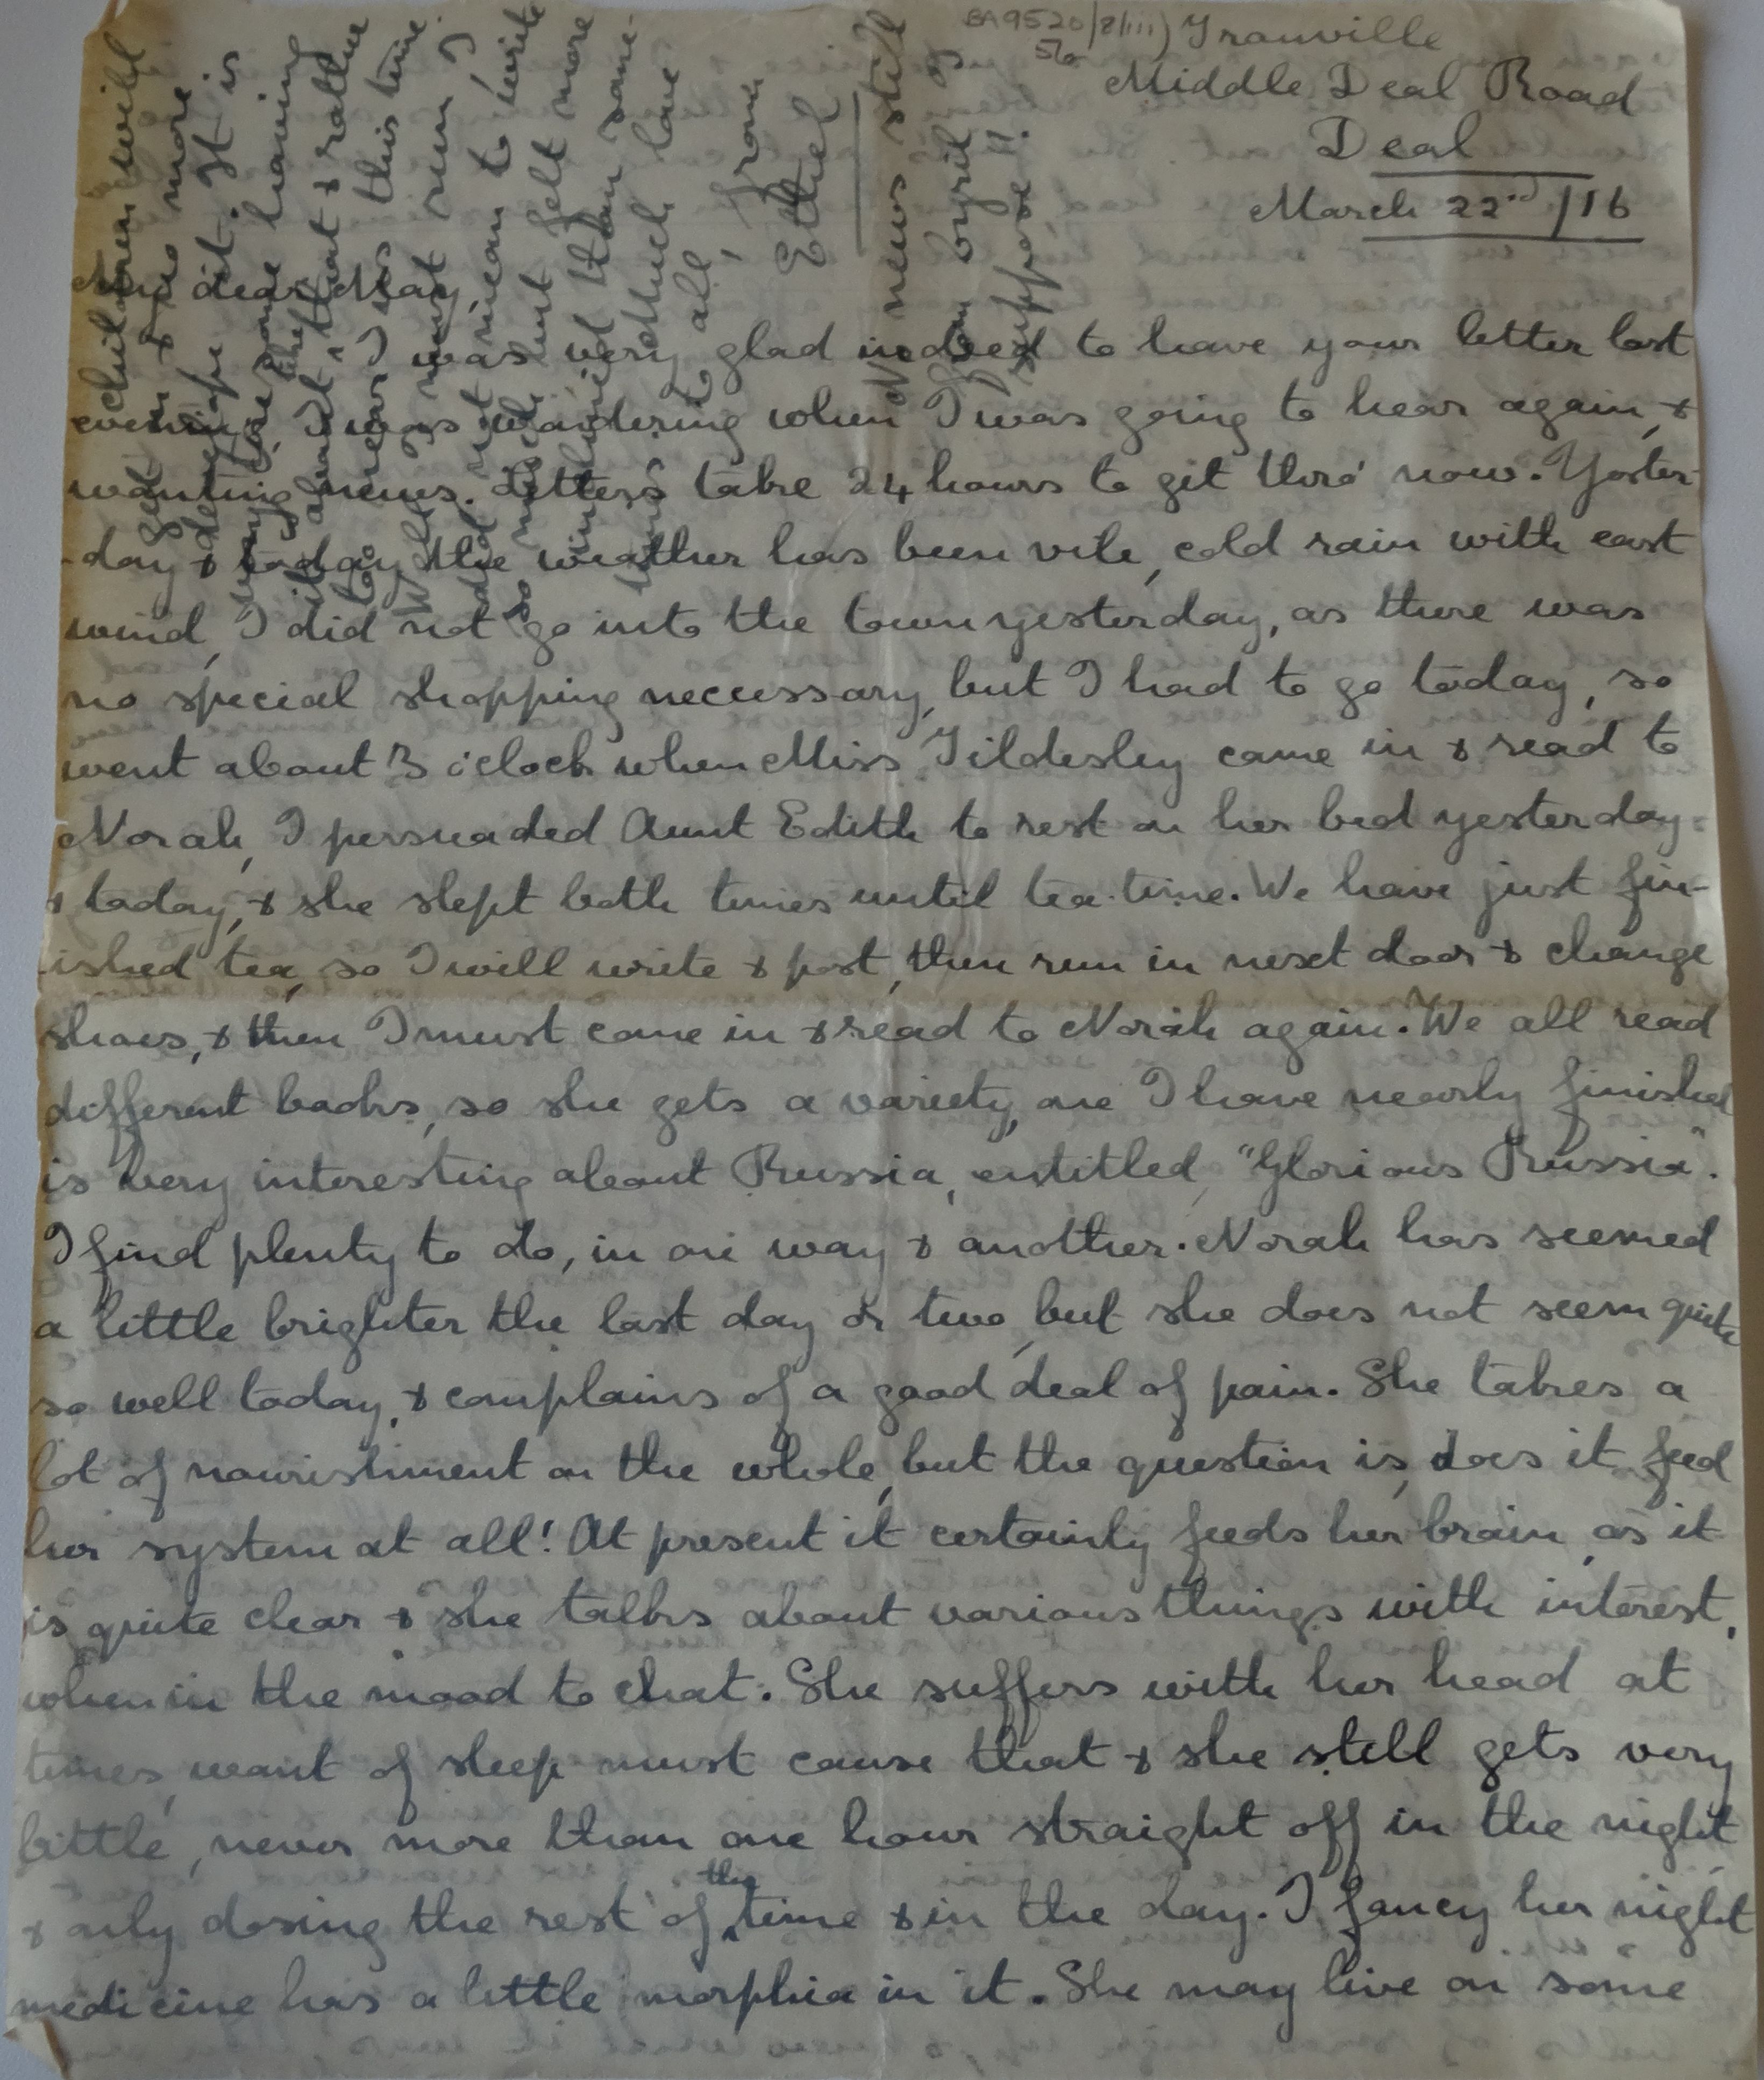 BA9520/8/iii)
5/0
Granville
Middle Deal Road
Deal
March 22nd /16
My dear May,
I was very glad indeed to have your letter last
evening, I was wondering when I was going to hear again, &
wanting news. Letters take 24 hours to get thro' now. Yester-
-day & today the weather has been vile, cold rain with east
wind, I did not go into the town yesterday, as there was
no special shopping neccessary, but I had to go today, so
went about 3 o'clock when Miss Tildesley came in & read to
Norah, I persuaded Aunt Edith to rest on her bed yesterday
& today, & she slept both times until tea-time. We have just fin-
-ished tea, so I will write & post, then run in next door & change
shoes, & then I must come in & read to Norah again. We all read
different books, so she gets a variety, one I have nearly finished
is very interesting about Russia, entitled, "Glorious Russia".
I find plenty to do, in one way & another. Norah has seemed
a little brighter the last day or two, but she does not seem quite
so well today, & complains of a good deal of pain. She takes a
lot of nourishment on the whole, but the question is, does it feed
her system at all! At present it certainly feeds her brain, as it
is quite clear & she talks about various things with interest,
when in the mood to chat. She suffers with her head at
times, want of sleep must cause that & she still gets very
little, never more than one hour straight off in the night,
& only dosing the rest of the time & in the day. I fancy her night
medicine has a little morphia in it. She may live on some
children will
get it & no more
develope it. It is
very tiresome having
it about, that & rather
to near I was this time.
Well I must run I
did not mean to write
so much but felt more
inclined than some-
times.
Much love
to all,
from
Ethel
No news still
from Cyril I
suppose!!